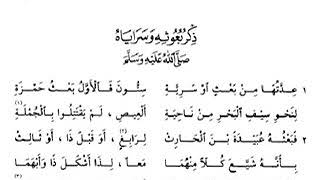 ذِكْرُ بُعُوثِهِ وَسَرَايَاهُ
صَلَّى اللهُ عَلَيْهِ وَسَلَّمَ
١ عِدَّتُهَا مِنْ بَعْثٍ أَوْ سَرِيَّةِ سِتُّونَ فَالْأَوَّلُ بَعْثُ حَمْزَةِ
لِنَحْوِ سِيْفِ الْبَحْرِ مِنْ نَاحِيَةِ الْعِيصِ، لَمْ يَقْتَتِلُوا بِالْجُمْلَةِ (١)
٢ فَبَعْثُهُ عُبَيْدَةَ بْنَ الْحَارِثِ لِرَابِغٍ (٢)، أَوْ قَبْلَ ذَا، أَوْ ثَالِثِ
بِأَنَّهُ شَيَّعَ كُلًّا مِنْهُمَا مَعاً، لِذَا أَشْكَلَ ذَا وَأَبْهَمَا